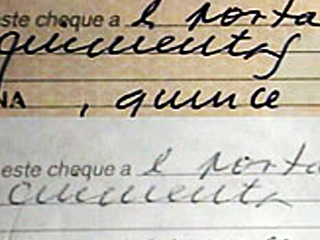 este cheque a el porta
quinientos
NA , quince
este cheque a el porta
quinientos